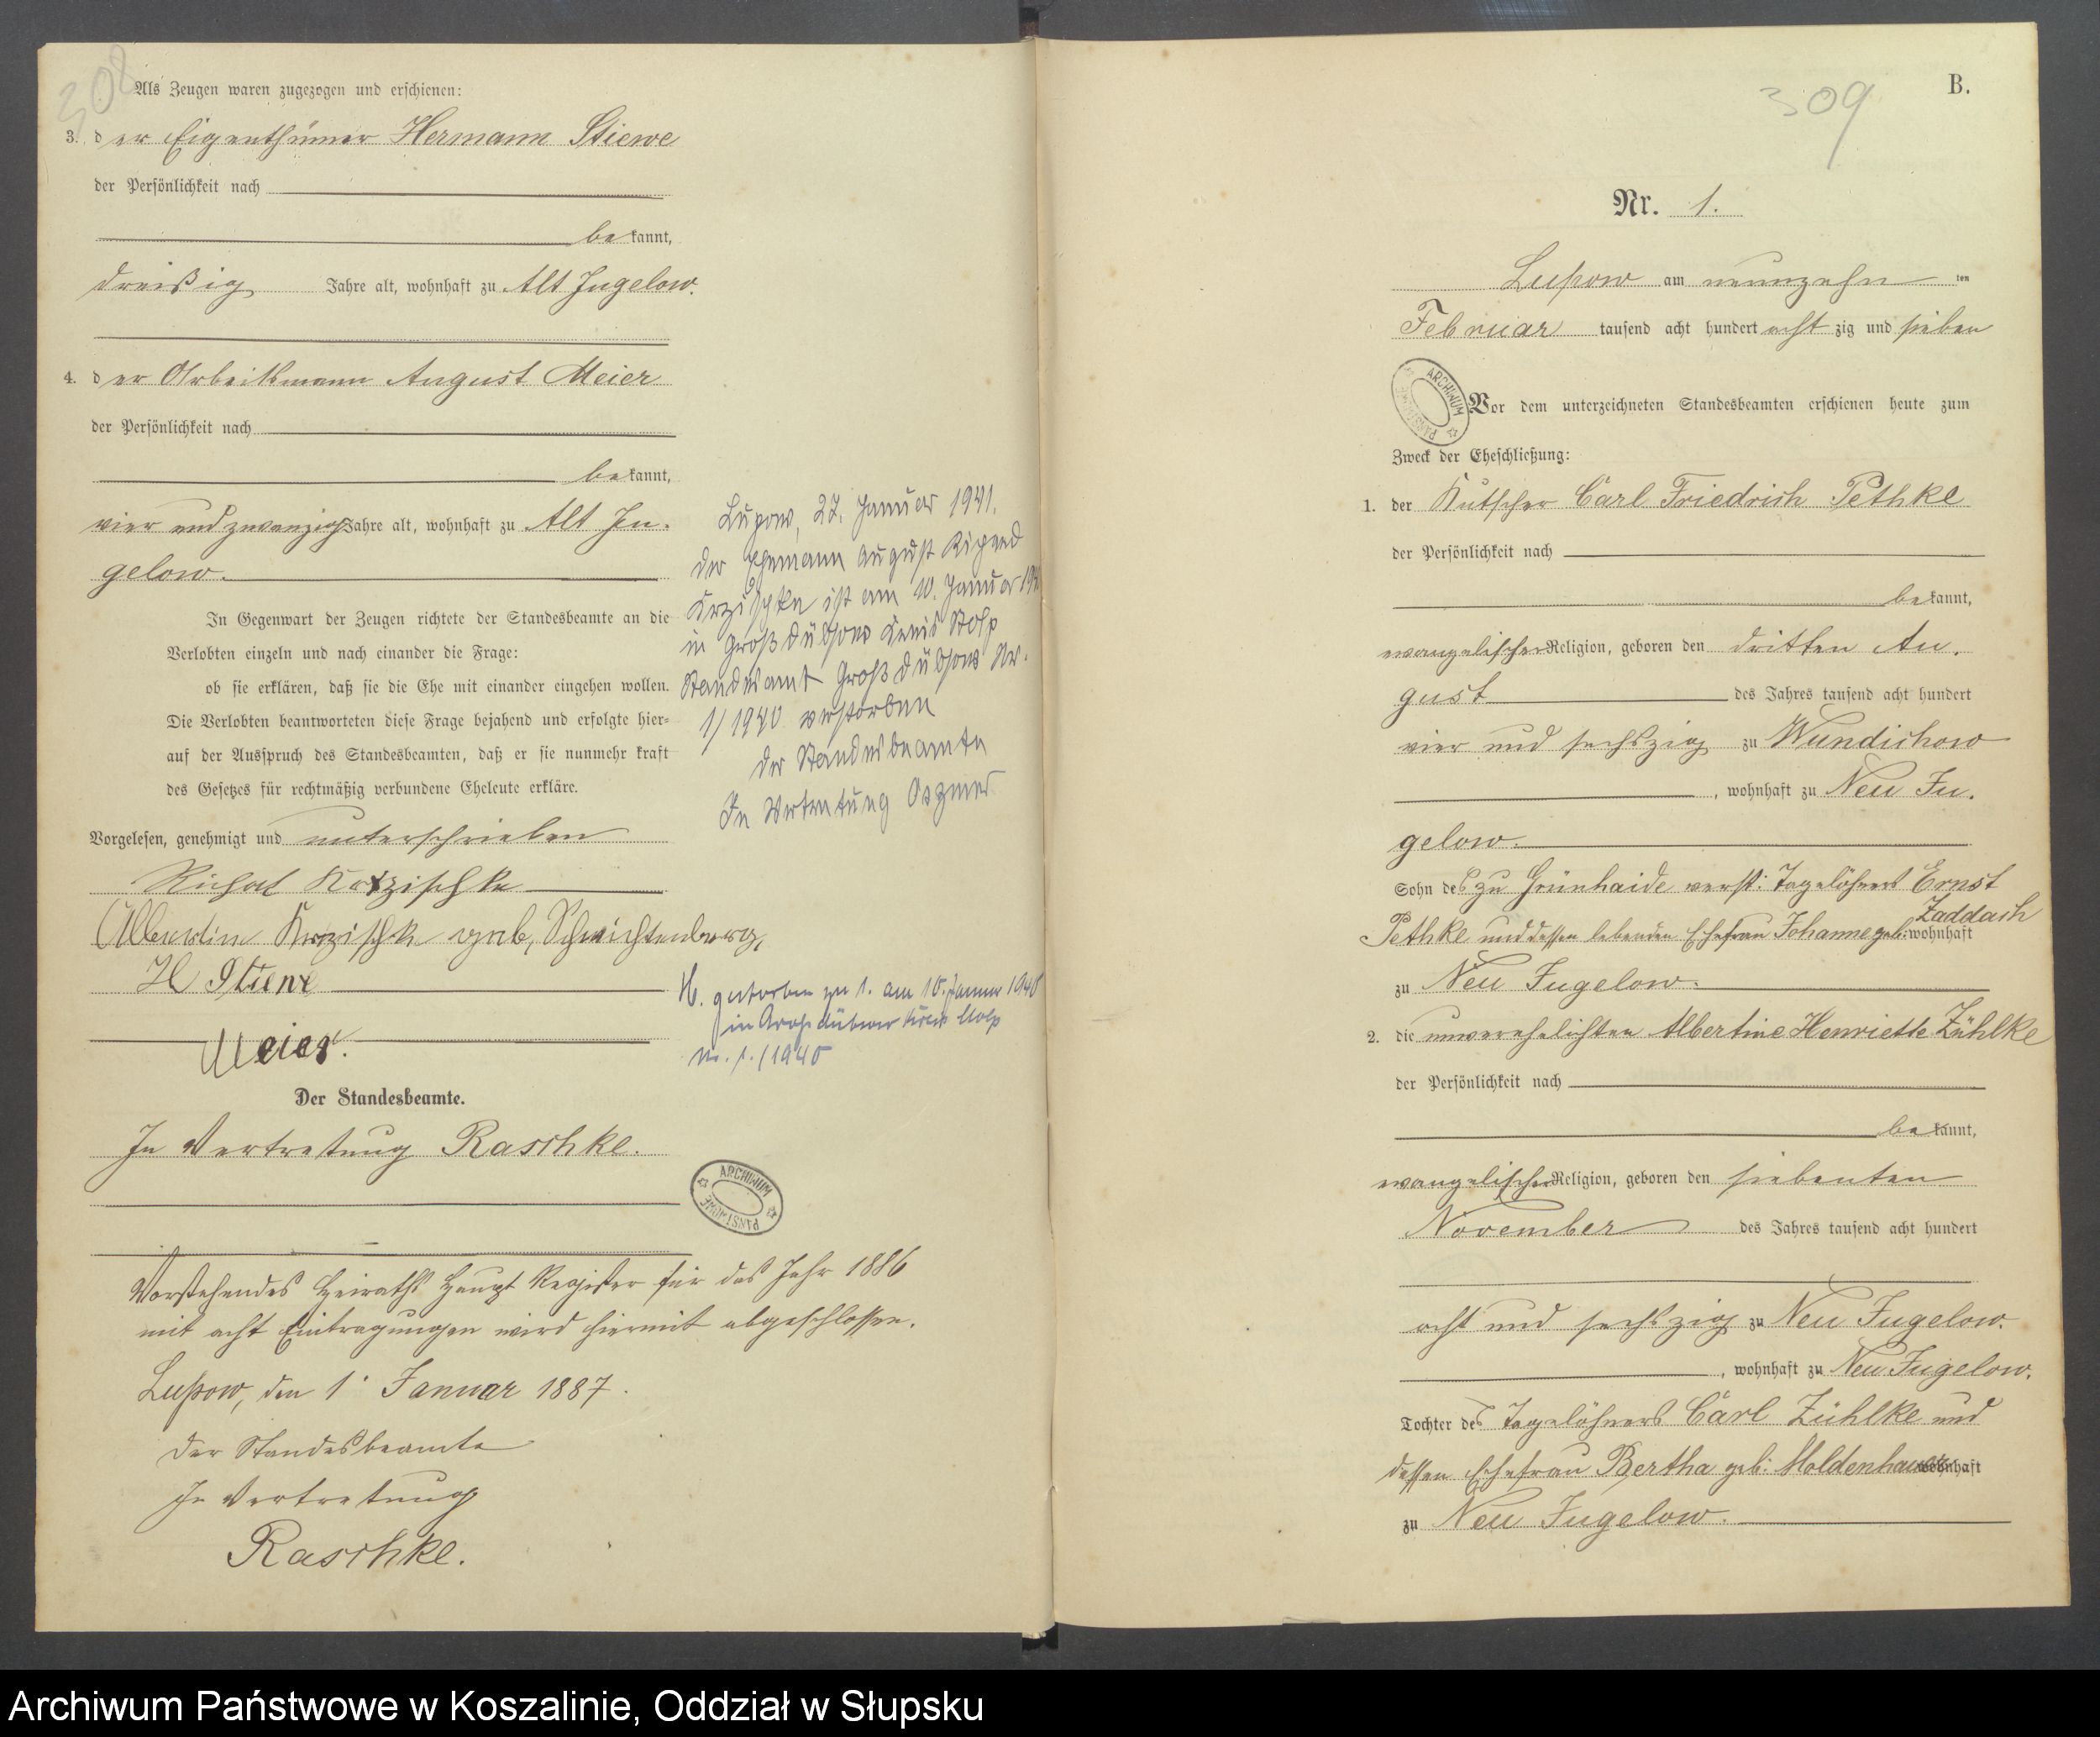 308
Als Zeugen waren zugezogen und erschienen:
3. der Eigenthümer Hermann Stiewe
der Persönlichkeit nach
bekannt,
dreißig Jahre alt, wohnhaft zu Alt Jugelow.
4. der Arbeitsmann August Meier
der Persönlichkeit nach
bekannt,
vier und zwanzig Jahre alt, wohnhaft zu Alt Ju-
gelow.
In Gegenwart der Zeugen richtete der Standesbeamte an die
Verlobten einzeln und nach einander die Frage:
ob sie erklären, daß sie die Ehe mit einander eingehen wollen.
Die Verlobten beantworteten diese Frage bejahend und erfolgte hier-
auf der Ausspruch des Standesbeamten, daß er sie nunmehr kraft
des Gesetzes für rechtmäßig verbundene Eheleute erkläre.
Vorgelesen, genehmigt und unterschrieben
Krzischke
Krzischke geb. Schwichtenberg,
H Stiewe
Meier.
Der Standesbeamte.
In Vertretung Raschke.
ARCHIWUM PAŃSTWOWE
Vorstehendes Heiraths Haupt Register für das Jahr 1886
mit acht Eintragungen wird hiermit abgeschlossen.
Lupow, den 1. Januar 1887.
Der Standesbeamte
In Vertretung
Raschke.
Lupow, 27. Januar 1941.
Der Ehemann August
Krzischke ist am 10. Januar
in Groß Dübsow Kreis Stolp
Standesamt Groß Dübsow Nr.
1/1940 verstorben
Der Standesbeamte
In Vertretung
H. gestorben zu 1. am 10. Januar 1940
in Groß Dübsow Kreis Stolp
Nr. 1./1940
309
B.
Nr. 1.
Lupow am neunzehn ten
Februar tausend acht hundert acht zig und sieben
ARCHIWUM PAŃSTWOWE
Vor dem unterzeichneten Standesbeamten erschienen heute zum
Zweck der Eheschließung:
1. der Kutscher Carl Friedrich Pethke
der Persönlichkeit nach
bekannt,
evangelischer Religion, geboren den dritten Au-
gust des Jahres tausend acht hundert
vier und sechszig zu Wundichow
, wohnhaft zu Neu Ju-
gelow.
Sohn des zu Grünhaide verst. Tagelöhners Ernst
Pethke und dessen lebenden Ehefrau Johanne geb. Zaddach wohnhaft
zu Neu Jugelow.
2. die unverehelichten Albertine Henriette Zühlke
der Persönlichkeit nach
bekannt,
evangelischer Religion, geboren den siebenten
November des Jahres tausend acht hundert
acht und sechszig zu Neu Jugelow.
, wohnhaft zu Neu Jugelow.
Tochter des Tagelöhners Carl Zühlke und
dessen Ehefrau Bertha geb. Moldenhauer wohnhaft
zu Neu Jugelow.
Archiwum Państwowe w Koszalinie, Oddział w Słupsku